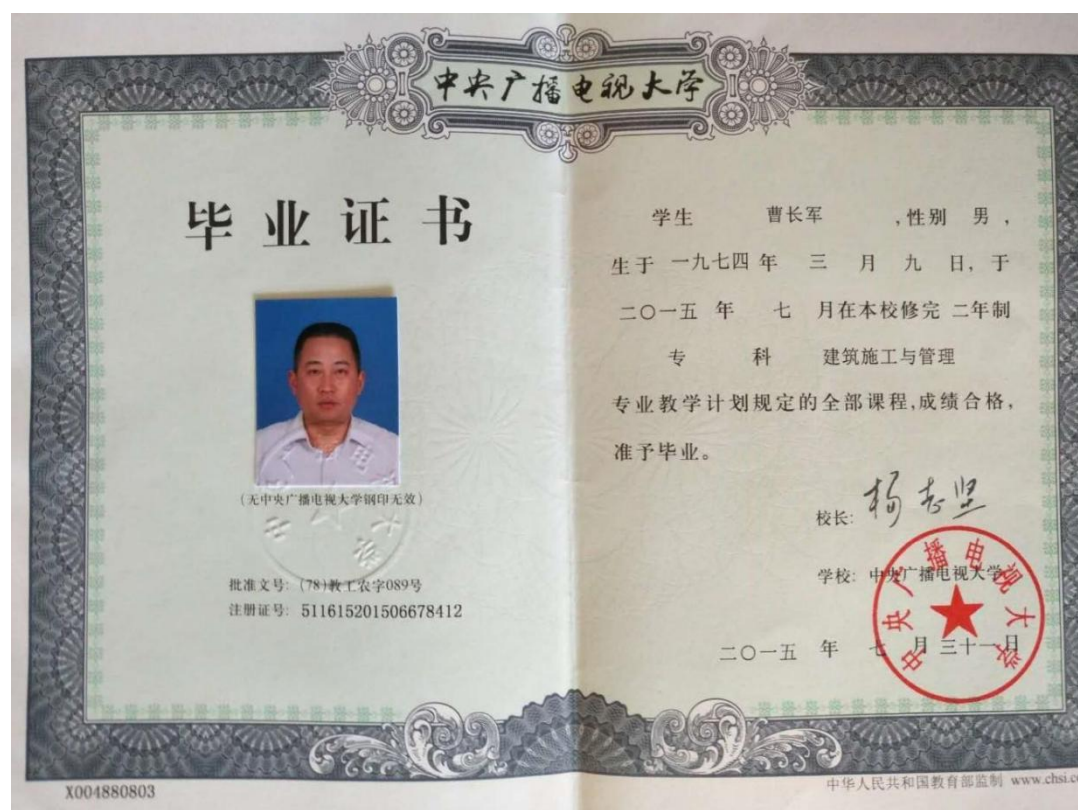 中央广播电视大学
毕业证书
(无中央广播电视大学钢印无效)
批准文号: (78)教工农字089号
注册证号: 511615201506678412
X004880803
学生 曹长军 ,性别 男,
生于 一九七四年 三 月 九 日, 于
二〇一五 年 七 月在本校修完 二年制
专 科 建筑施工与管理
专业教学计划规定的全部课程,成绩合格,
准予毕业。
校长: 杨志坚
学校: 中央广播电视大学
二〇一五 年 七 月 三十一日
中央广播电视大学
中华人民共和国教育部监制 www.chsi.co